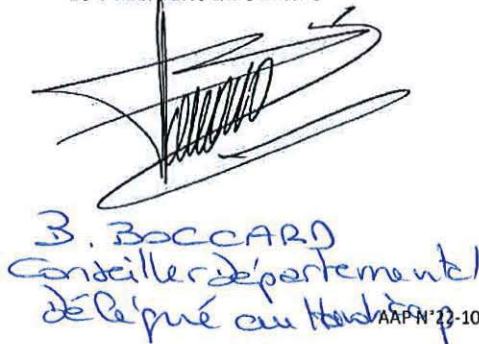 B. BOCCARD
Conseiller départemental
Délégué au Handicap
AAP N°22-10